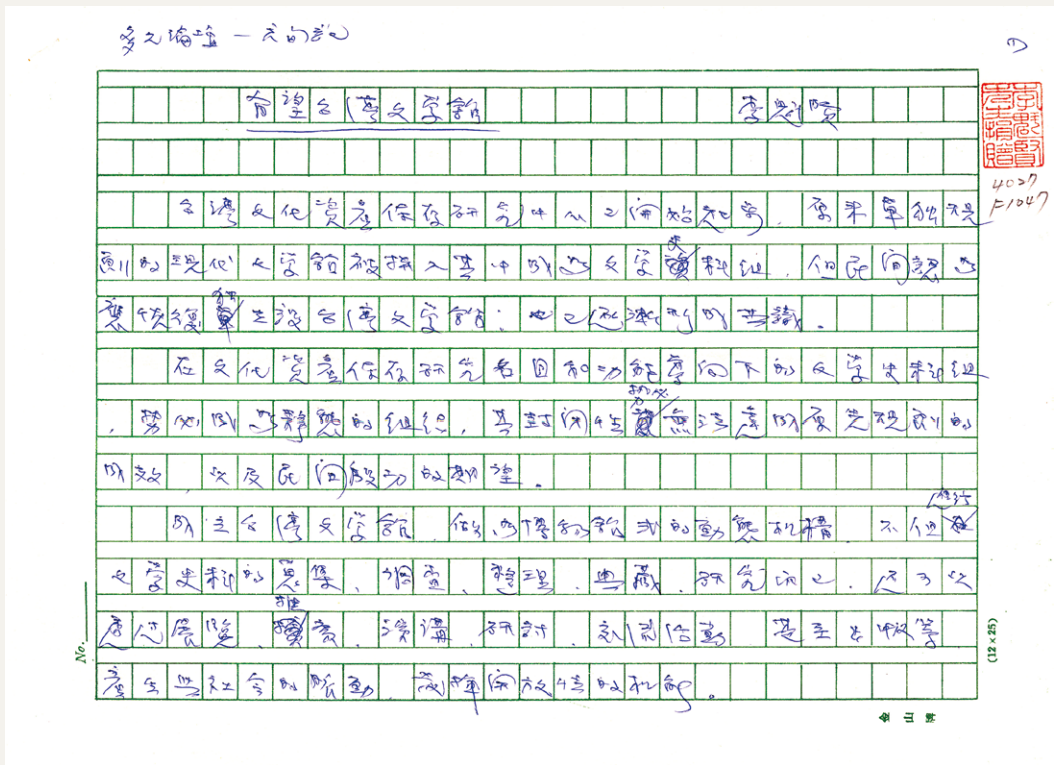 多元論壇一定的說
1
有望台灣文学館 李魁賢
李魁賢贈
4027
F1047
台灣文化資產保存研究中心已開始起步,原来單独規
劃的現代文学館被插入其中成為文学史料組,但民間認為
應恢復獨立設台灣文学館,也已逐漸形成共識。
在文化資產保存研究名目和功能導向下的文学史料組
,勢必成為靜態的組織,其封閉性勢必無法達成原先規劃的
成效,以及民間殷切的期望。
成立台灣文学館,做為博物館式的動態机構,不但進行
文学史料的蒐集、調查、整理、典藏、研究而已,還可以
定心展覽、推廣、演講、研討、表演活動,甚至出版等
產生與社会的脈動,發揮開放性的机能。
No.
(12×25)
金山牌